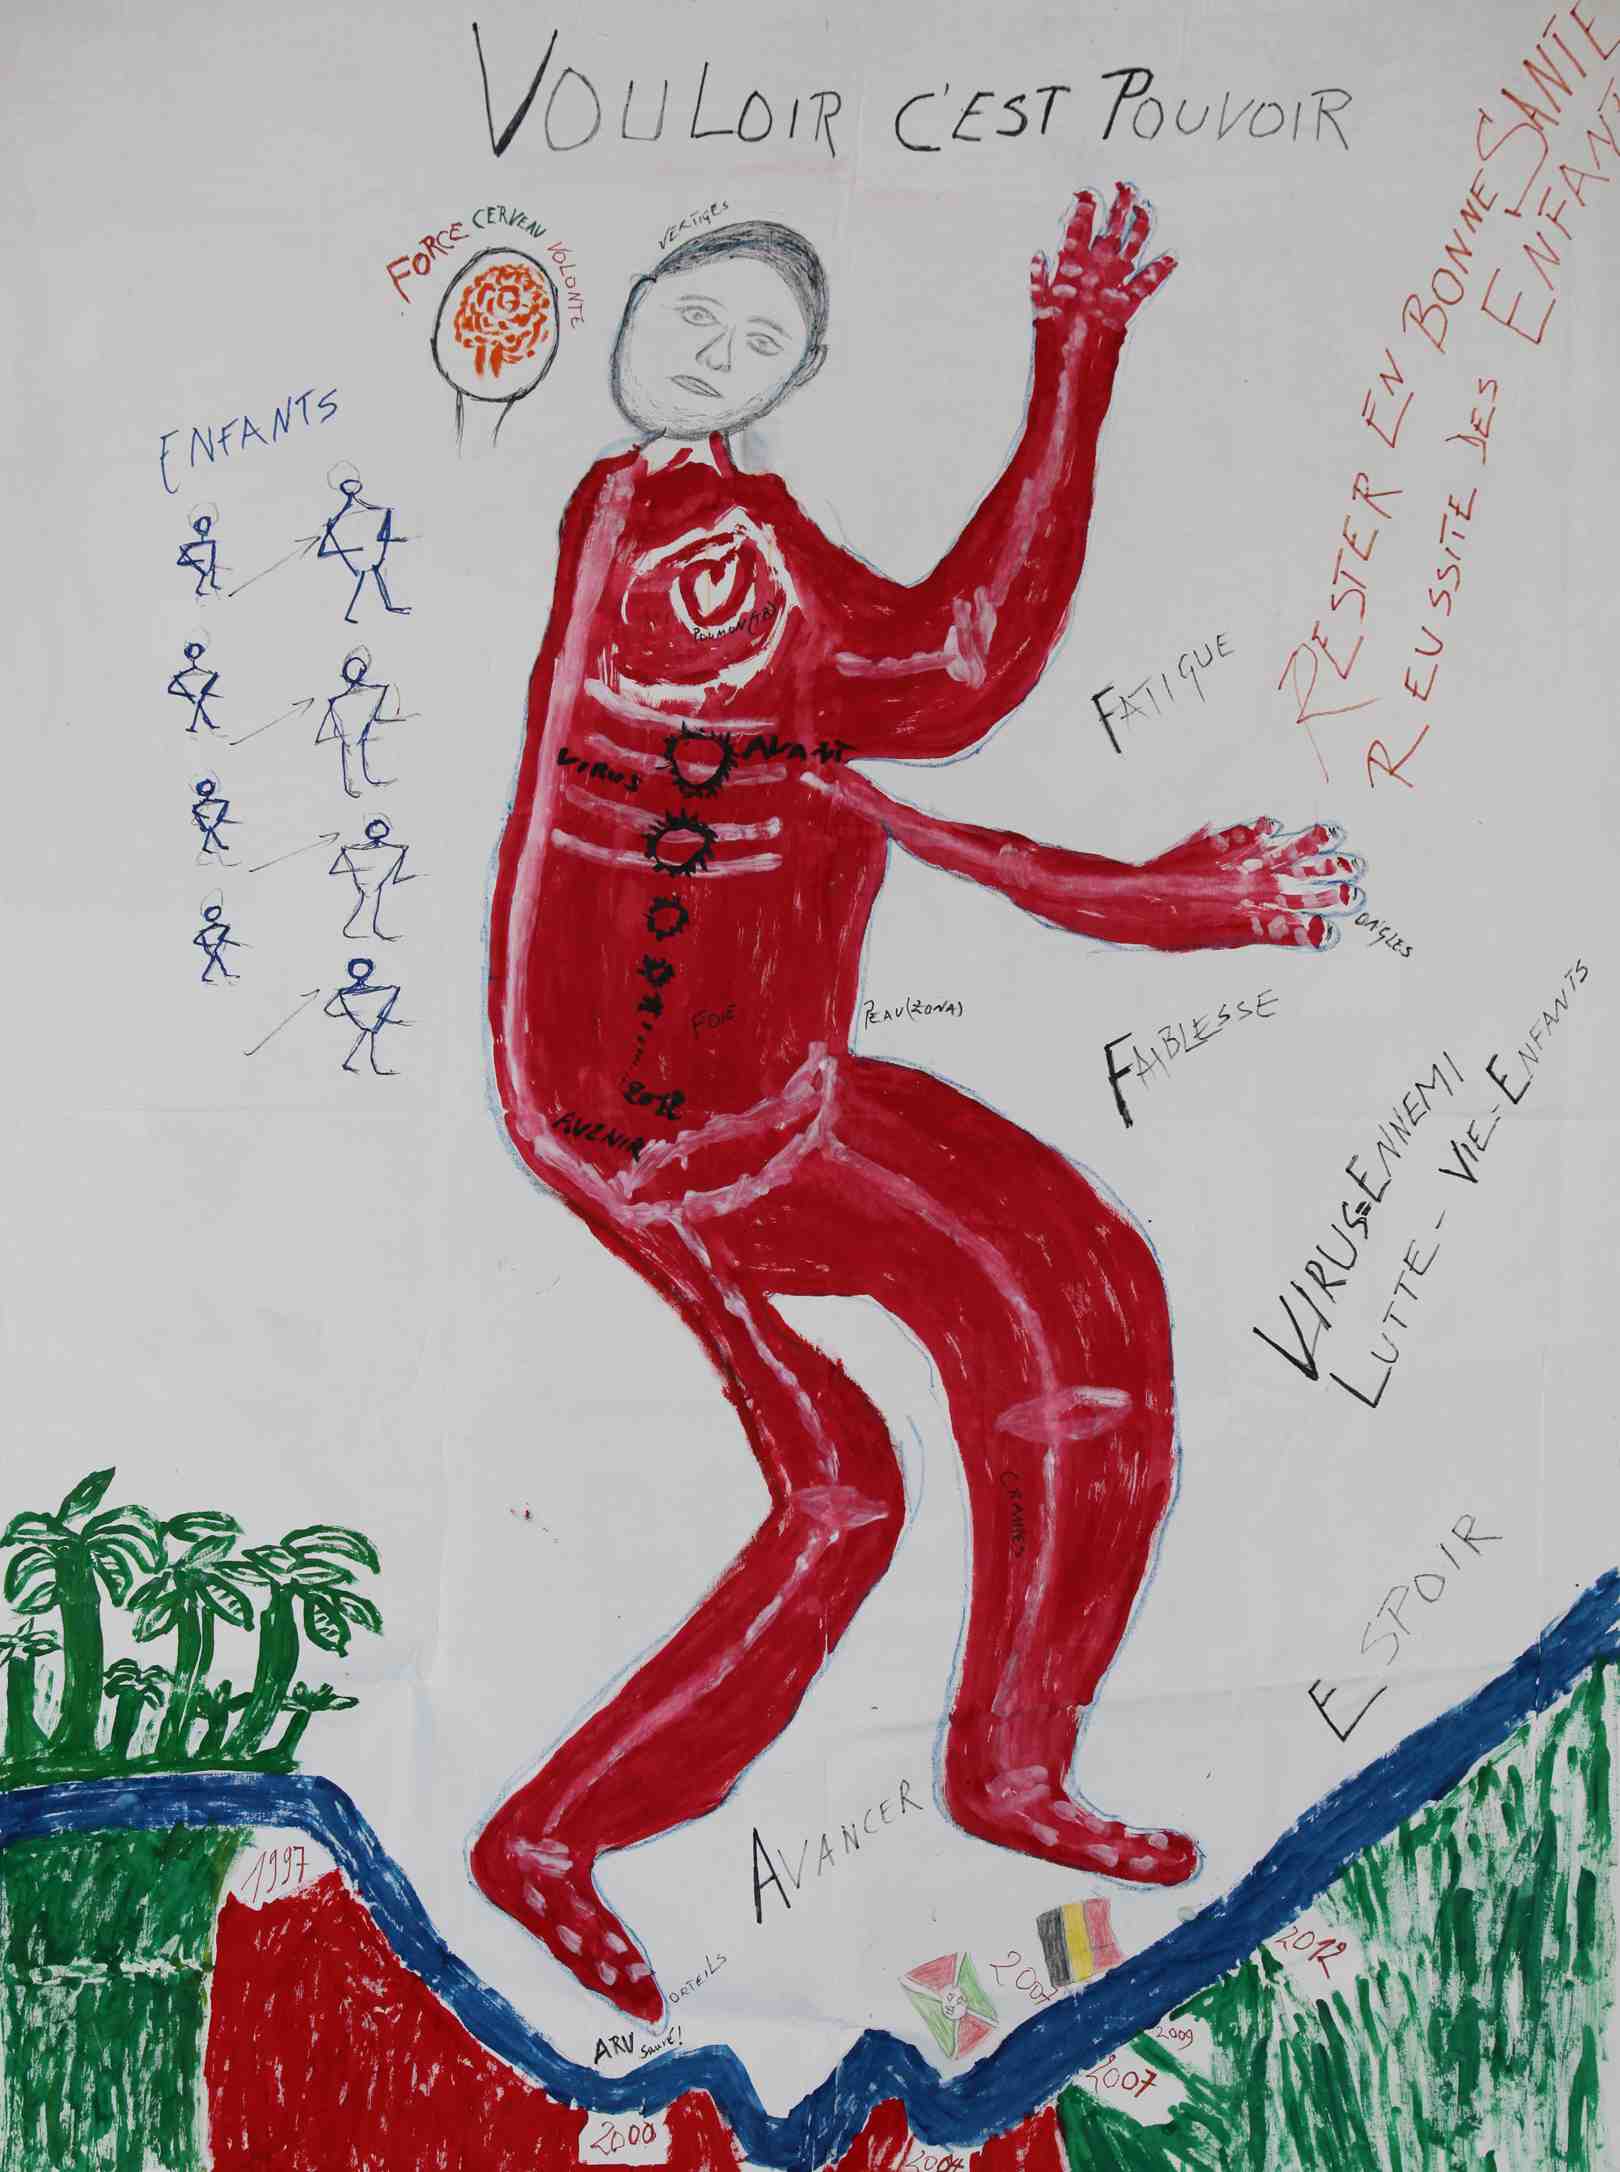 VOULOIR C'EST POUVOIR
FORCE CERVEAU VOLONTE
VERTIGES
RESTER EN BONNE SANTE
REUSSITE DES ENFANTS
ENFANTS
POUMON (TB)
FATIGUE
VIRUS AVANT
ONGLES
PEAU (ZONA)
FOIE
FAIBLESSE
2012
AVENIR
VIRUS=ENNEMI
LUTTE - VIE - ENFANTS
CRAMPES
ESPOIR
AVANCER
1997
ORTEILS
2007
2012
ARV sauvé!
2009
2007
2000
2004